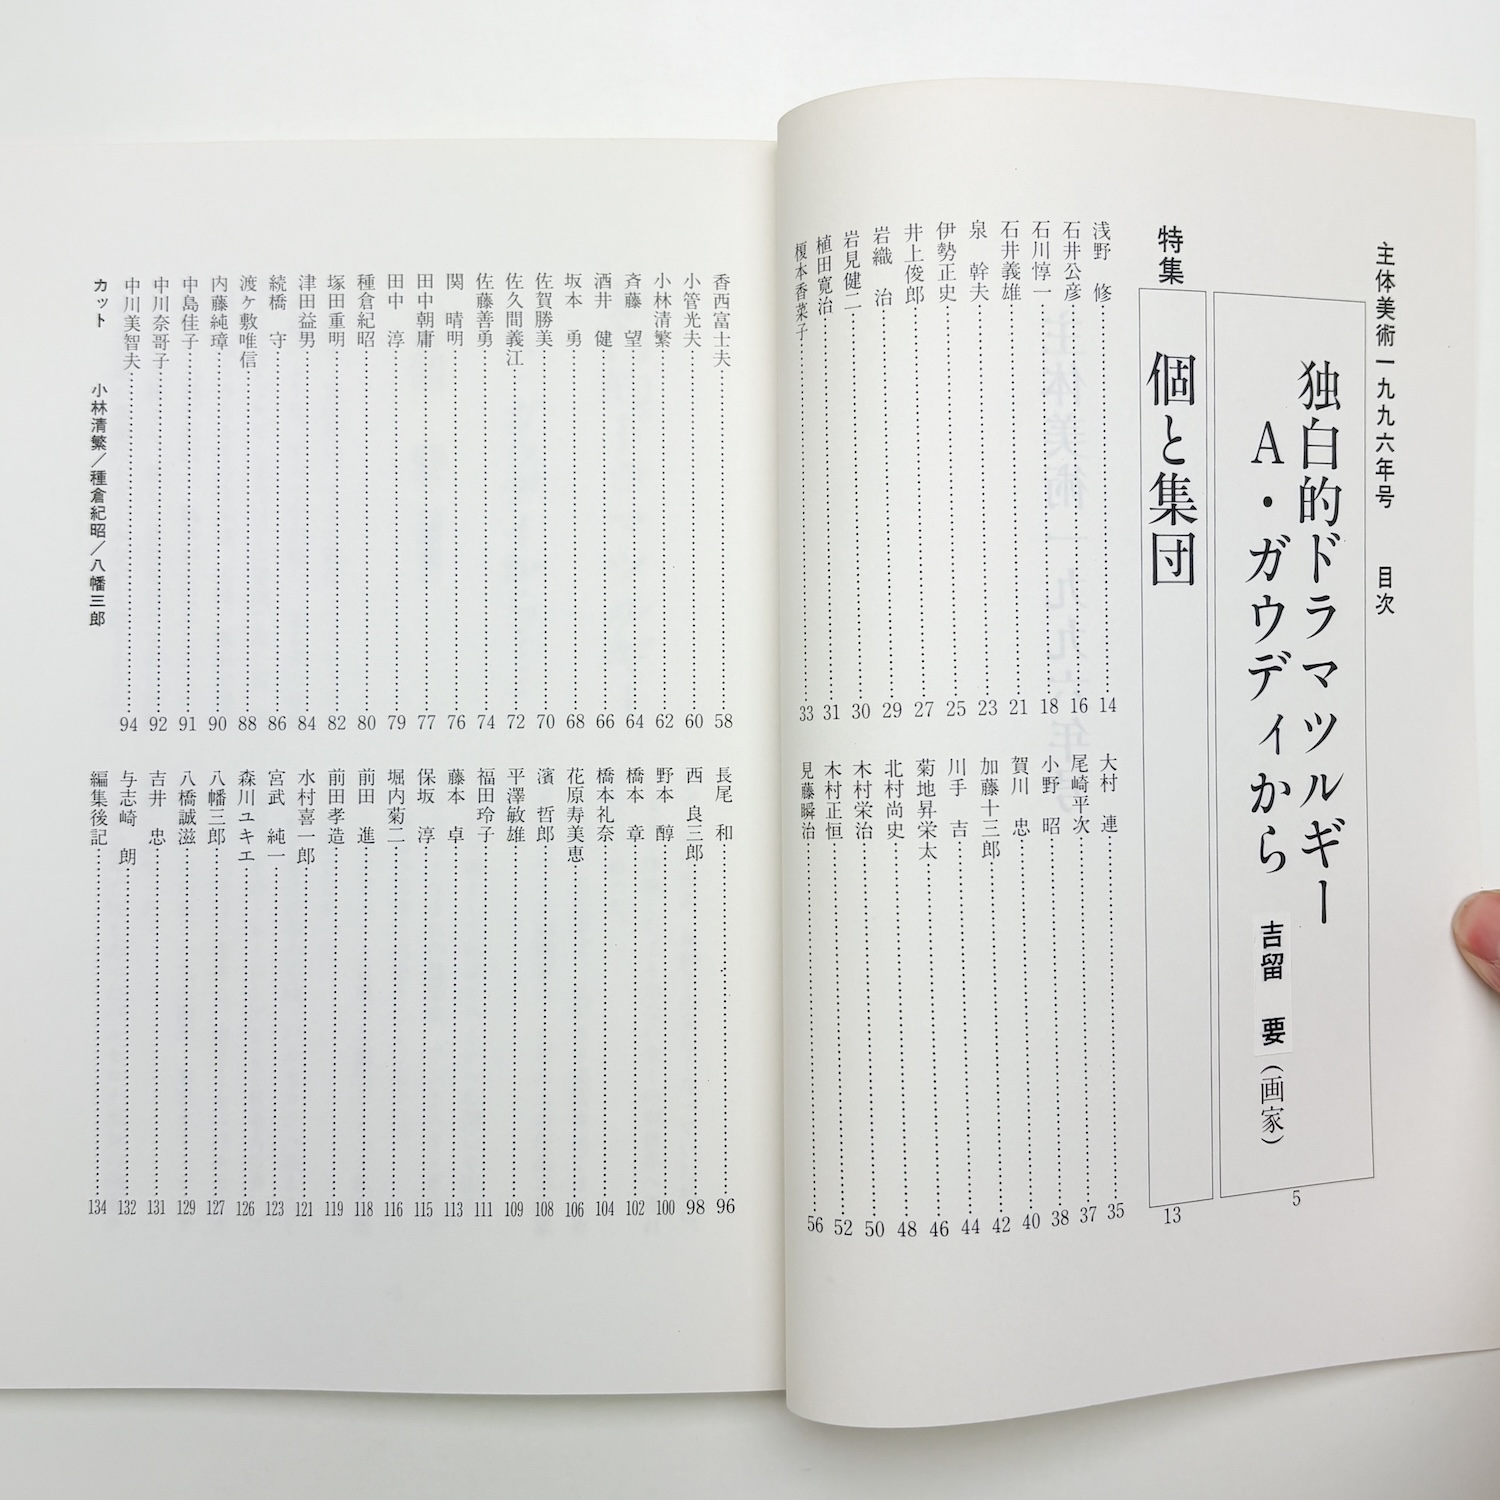 主体美術一九九六年号　目次
独白的ドラマツルギー
A・ガウディから　吉留　要（画家）
5
特集　個と集団
13
浅野　修……14
石井公彦……16
石川惇一……18
石井義雄……21
泉　幹夫……23
伊勢正史……25
井上俊郎……27
岩織　治……29
岩見健二……30
植田寛治……31
榎本香菜子……33
大村　連……35
尾崎平次……37
小野　昭……38
賀川　忠……40
加藤十三郎……42
川手　吉……44
菊地昇栄太……46
北村尚史……48
木村栄治……50
木村正恒……52
見藤瞬治……56
香西富士夫……58
小管光夫……60
小林清繁……62
斉藤　望……64
酒井　健……66
坂本　勇……68
佐賀勝美……70
佐久間義江……72
佐藤善勇……74
関　晴明……76
田中朝庸……77
田中　淳……79
種倉紀昭……80
塚田重明……82
津田益男……84
続橋　守……86
渡ヶ敷唯信……88
内藤純璋……90
中島佳子……91
中川奈哥子……92
中川美智夫……94
長尾　和……96
西　良三郎……98
野本　醇……100
橋本　章……102
橋本礼奈……104
花原寿美恵……106
濱　哲郎……108
平澤敏雄……109
福田玲子……111
藤本　卓……113
保坂　淳……115
堀内菊二……116
前田　進……118
前田孝造……119
水村喜一郎……121
宮武　純一……123
森川ユキエ……126
八幡三郎……127
八橋誠滋……129
吉井　忠……131
与志崎　朗……132
編集後記……134
カット　小林清繁／種倉紀昭／八幡三郎